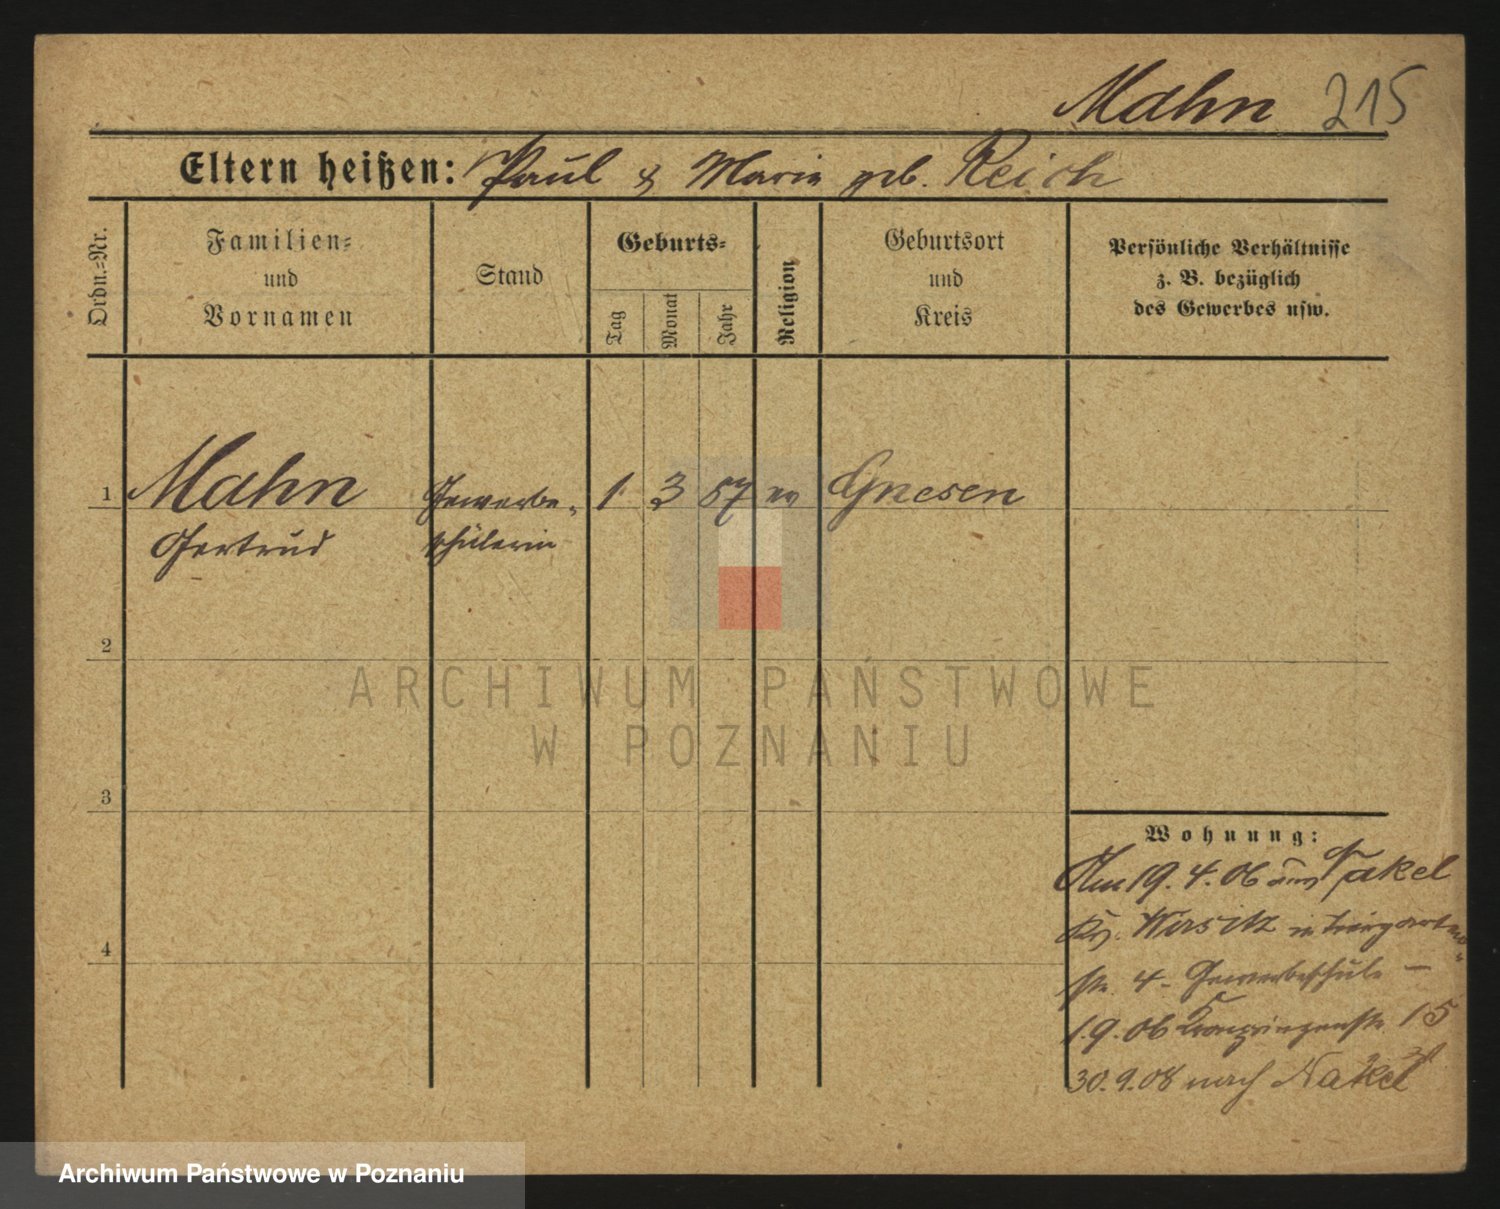 Mahn 215
Eltern heißen: Paul & Marie geb. Reich
Ordn.=Nr.
Familien=
und
Vornamen
Stand
Geburts=
Tag
Monat
Jahr
Religion
Geburtsort
und
Kreis
Persönliche Verhältnisse
z. B. bezüglich
des Gewerbes usw.
1 Mahn Gewerbe- 1 3 87 ev Gnesen
Gertrud schülerin
2
3
4
Wohnung:
Am 19. 4. 06 aus Nakel
Kr. Wirsitz in
str. 4 - Gewerbeschule -
1.9.06 Kronprinzenstr. 15
30.9.08 nach Nakel
ARCHIWUM PAŃSTWOWE
W POZNANIU
Archiwum Państwowe w Poznaniu